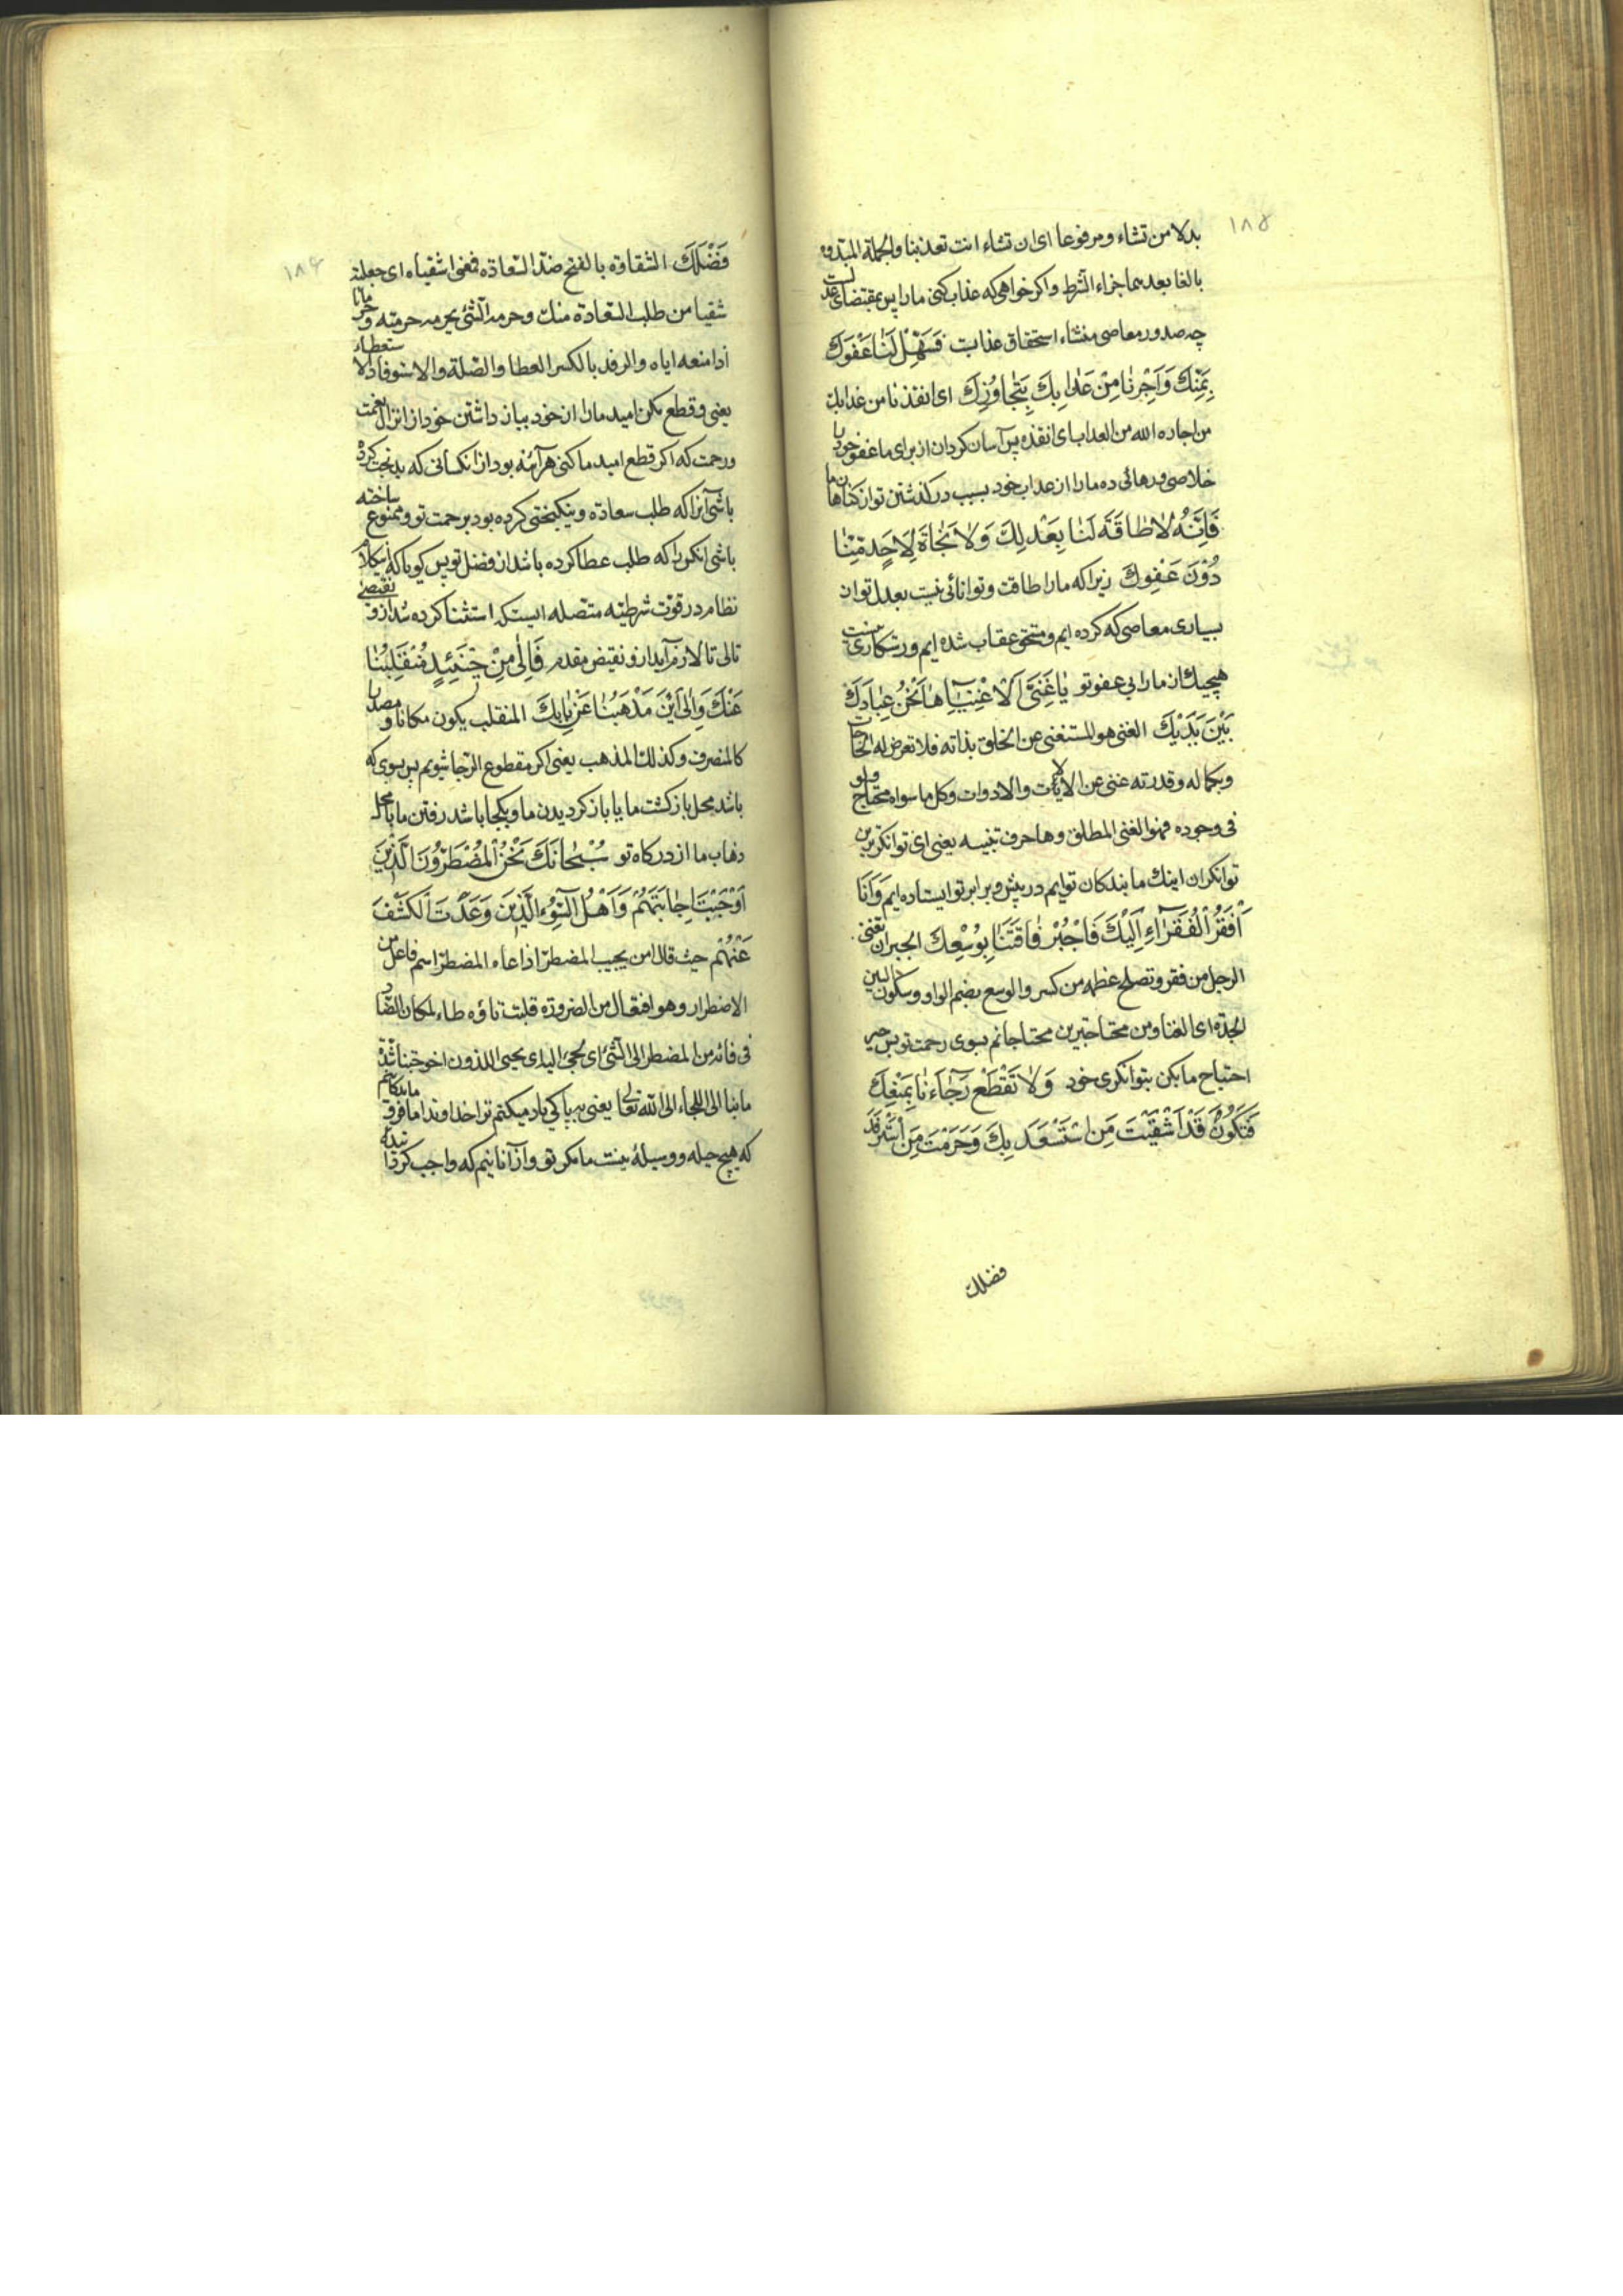 ۱۸۵
بدلا من تشاء و مرفوعا ای ان تشاء انت تعذبنا والجملة المبتدوه
بالفا بعدهما جزاء الشرط و اکر خواهی که عذاب کنی ما را پس بمقتضای عدلست
چه صدور معاصی منشاء استحقاق عذابت فَسَهِّلْ لَنَا عَفْوَكَ
بِمَنِّكَ وَاَجِرْنَا مِنْ عَذَابِكَ بِتَجَاوُزِكَ ای انقذنا من عذابك
من اجاره الله من العذاب ای انقذه پس آسان کردان از برای ما عفو خود را
خلاصی و رهائی ده ما را از عذاب خود بسبب درکذشتن تو از کناهان ما
فَاِنَّهُ لَا طَاقَةَ لَنَا بِعَدْلِكَ وَلَا نَجَاةَ لِاَحَدٍ مِنَّا
دُوْنَ عَفْوِكَ زیرا که ما را طاقت و توانائی نیست بعدل تو از
بسیاری معاصی که کرده ایم و مستحق عقاب شده ایم و رستکاری نیست
هیچیك از ما را بی عفو تو یَا غَنِیَّ الْاَغْنِیَاءِ هَا نَحْنُ عِبَادُكَ
بَیْنَ یَدَیْكَ الغنی هو المستغنی عن الخلق بذاته فلا تعرض له الحاجات
و بکماله و قدرته غنی عن الالات والادوات وکل ما سواه محتاج ولو
فی وجوده فهو الغنی المطلق وها حرف تنبیه یعنی ای توانکرترین
توانکران اینك ما بندکان توایم در پیش و برابر تو ایستاده ایم وَ اَنَا
اَفْقَرُ الْفُقَرَاءِ اِلَیْكَ فَاجْبُرْ فَاقَتَنَا بِوُسْعِكَ الجبر ان تغنی
الرجل من فقر و تصلح عظمه من کسر والوسع بضم الواو و سکون السین
الجدة ای الغنا و من محتاجترین محتاجانم بسوی رحمت تو پس جبر
احتیاج ما بکن بتوانکری خود وَلَا تَقْطَعْ رَجَاءَنَا بِمَنْعِكَ
فَتَكُوْنَ قَدْ اَشْقَیْتَ مَنِ اسْتَسْعَدَ بِكَ وَحَرَمْتَ مَنِ اسْتَرْفَدَ
فضلك
۱۸۴
فَضْلَكَ الشقاوة بالفتح ضد السعادة فمعنی اشقیاه ای جعلته
شقیا من طلب السعادة منك و حرمه الشئ یحرمه حرمته و حرمانا
اذا منعه ایاه والرفد بالکسر العطا والصلة والاسترفاد الاستعطاء
یعنی و قطع مکن امید ما را از خود بباز داشتن خود از انزال نعمت
و رحمت که اکر قطع امید ما کنی هر آینه بود از انکسانی که بدبخت کرده
باشی آنرا که طلب سعادة و نیکبختی کرده بود برحمت تو و ممنوع ساخته
باشی انکس را که طلب عطا کرده باشد از فضل تو پس کویا که کلام
نظام در قوت شرطیه متصله ایست که استثنا کرده شد از و نقیض
تالی تا لازم آید از و نقیض مقدم فَاِلٰی مَنْ حِیْنَئِذٍ مُنْقَلَبُنَا
عَنْكَ وَاِلٰی اَیْنَ مَذْهَبُنَا عَنْ بَابِكَ المنقلب یکون مکانا و مصدرا
کالمنصرف و کذلك المذهب یعنی اکر مقطوع الرجا شویم پس بسوی که
باشد محل بازکشت ما یا بازکردیدن ما و بکجا باشد رفتن ما یا محل
ذهاب ما از درکاه تو سُبْحَانَكَ نَحْنُ الْمُضْطَرُّوْنَ الَّذِیْنَ
اَوْجَبْتَ اِجَابَتَهُمْ وَ اَهْلُ السُّوْءِ الَّذِیْنَ وَعَدْتَ الْكَشْفَ
عَنْهُمْ حیث قال امن یجیب المضطر اذا دعاه المضطر اسم فاعل من
الاضطرار و هو افتعال من الضرورة قلبت تاؤه طاء لمکان الضاد
ما بنا الی اللجاء الی الله تعالی یعنی بپاکی یاد میکنم ترا خداوندا
که هیچ حیله و وسیلهٔ نیست ما مکر تو و از آنانیم که واجب کردهٔ